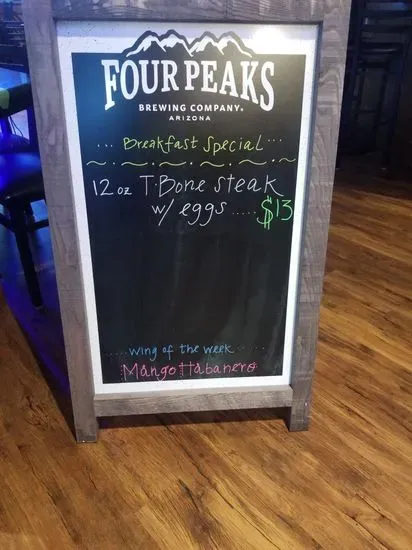 FOUR PEAKS
BREWING COMPANY®
ARIZONA
... Breakfast Special ...
12 oz T-Bone steak
w/ eggs ..... $13
..... wing of the week .....
Mango Habanero